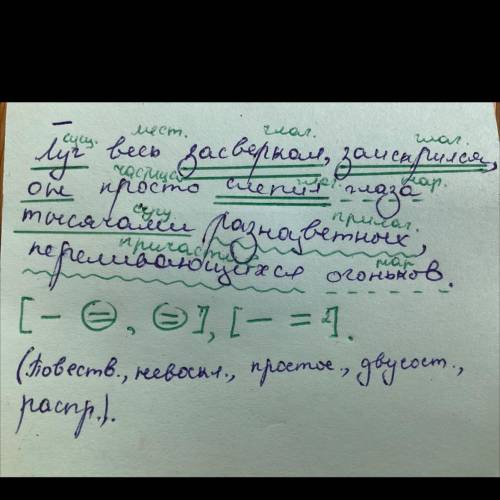 сущ. мест. глаг. глаг.
Луг весь засверкал, заискрился,
частица глаг. нар.
он просто слепил глаза
сущ. прилаг.
тысячами разноцветных,
причаст. нар.
переливающихся огоньков.
[- =, =], [- = ].
(Повеств., невоскл., простое, двусост.,
распр.).